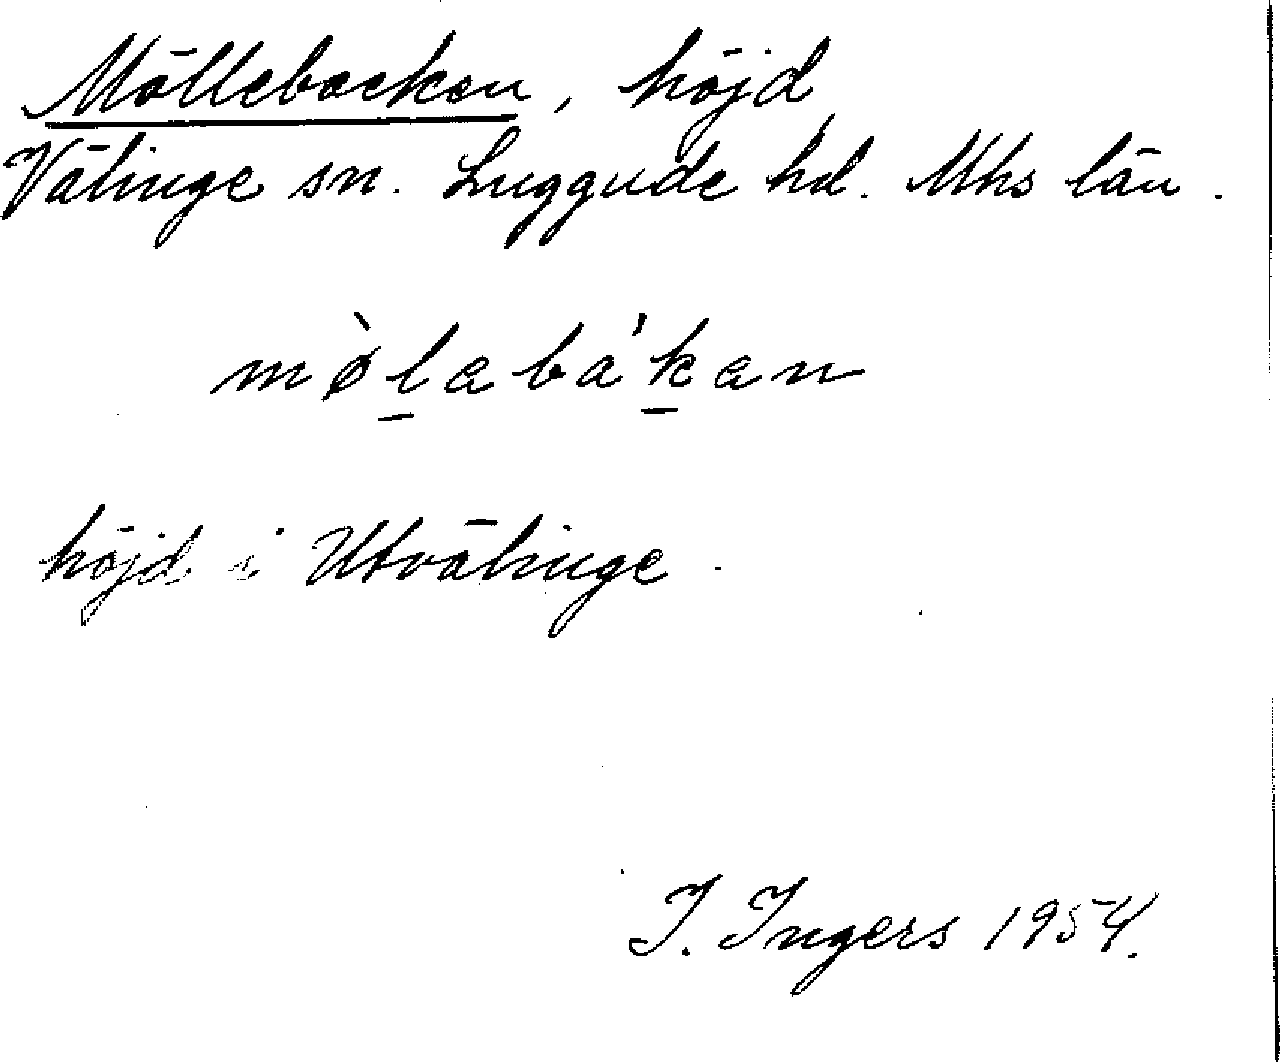 Möllebacken, höjd
Välinge sn. Luggude hd. Mhs län.
mø̀l̲abá'k̲an
höjd i Utvälinge.
I. Ingers 1954.